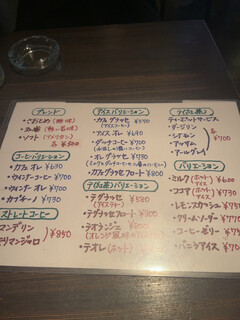 ブレンド
・さおとめ(酸味)
・ソフト(アメリカン)
各 ¥500
コーヒーバリエーション
・カフェ オレ ¥630
・ウィンナーコーヒー ¥700
・ウィンナーオレ ¥700
・カプチーノ ¥730
ストレートコーヒー
マンデリン
キリマンジャロ
¥850
アイスバリエーション
・カフェグラッセ ¥550
(アイスコーヒー)
・アイス オレ ¥690
・ダッチコーヒー ¥700
・オレグラッセ ¥730
・カフェグラッセフロート ¥800
ティ(紅茶)バリエーション
・テグラッセ ¥580
(アイスティー)
・テグラッセフロート
・テオランジェ
・テオレ(ホット)
ティ(紅茶)
ティーポットサービス
・ダージリン
・シナモン
・アッサム
・アールグレイ
各 ¥700
バリエーション
・ミルク(ホット アイス) ¥600
・ココア(ホット アイス) ¥730
・レモンスカッシュ ¥750
・クリームソーダー ¥770
・コーヒーゼリー
・バニラアイス